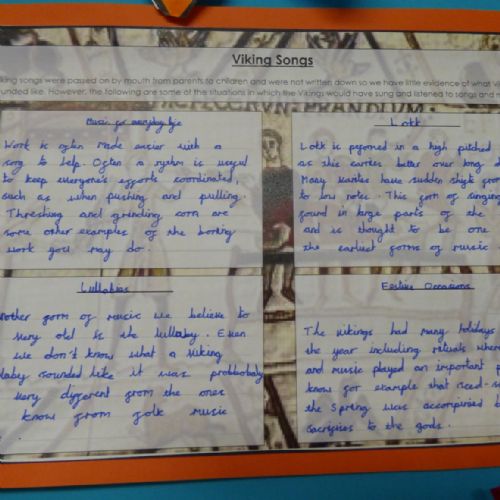 Viking Songs
king songs were passed on by mouth from parents to children and were not written down so we have little evidence of what vi
unded like. However, the following are some of the situations in which the Vikings would have sung and listened to songs and m
Music for everyday life
Work is often made easier with a
song to help. Often a rythm is useful
to keep everyone's efforts coordinated,
such as when pushing and pulling.
Threshing and grinding corn are
some other examples of the boring
work you may do.
Lokk
Lokk is performed in a high pitched
as this carries better over long d
Many Karles have sudden shifts from
to low notes. This form of singing
found in large parts of the
and is thought to be one
the earliest forms of music
Lullabies
nother form of music we believe to
very old is the lullaby. Even
we don't know what a viking
laby sounded like it was probbobaly
very different from the ones
know from folk music
Festive Occasions
The vikings had many holidays
the year including rituals where
and music played an important p
know for example that
the Spring was accompinied b
sacrifises to the gods.